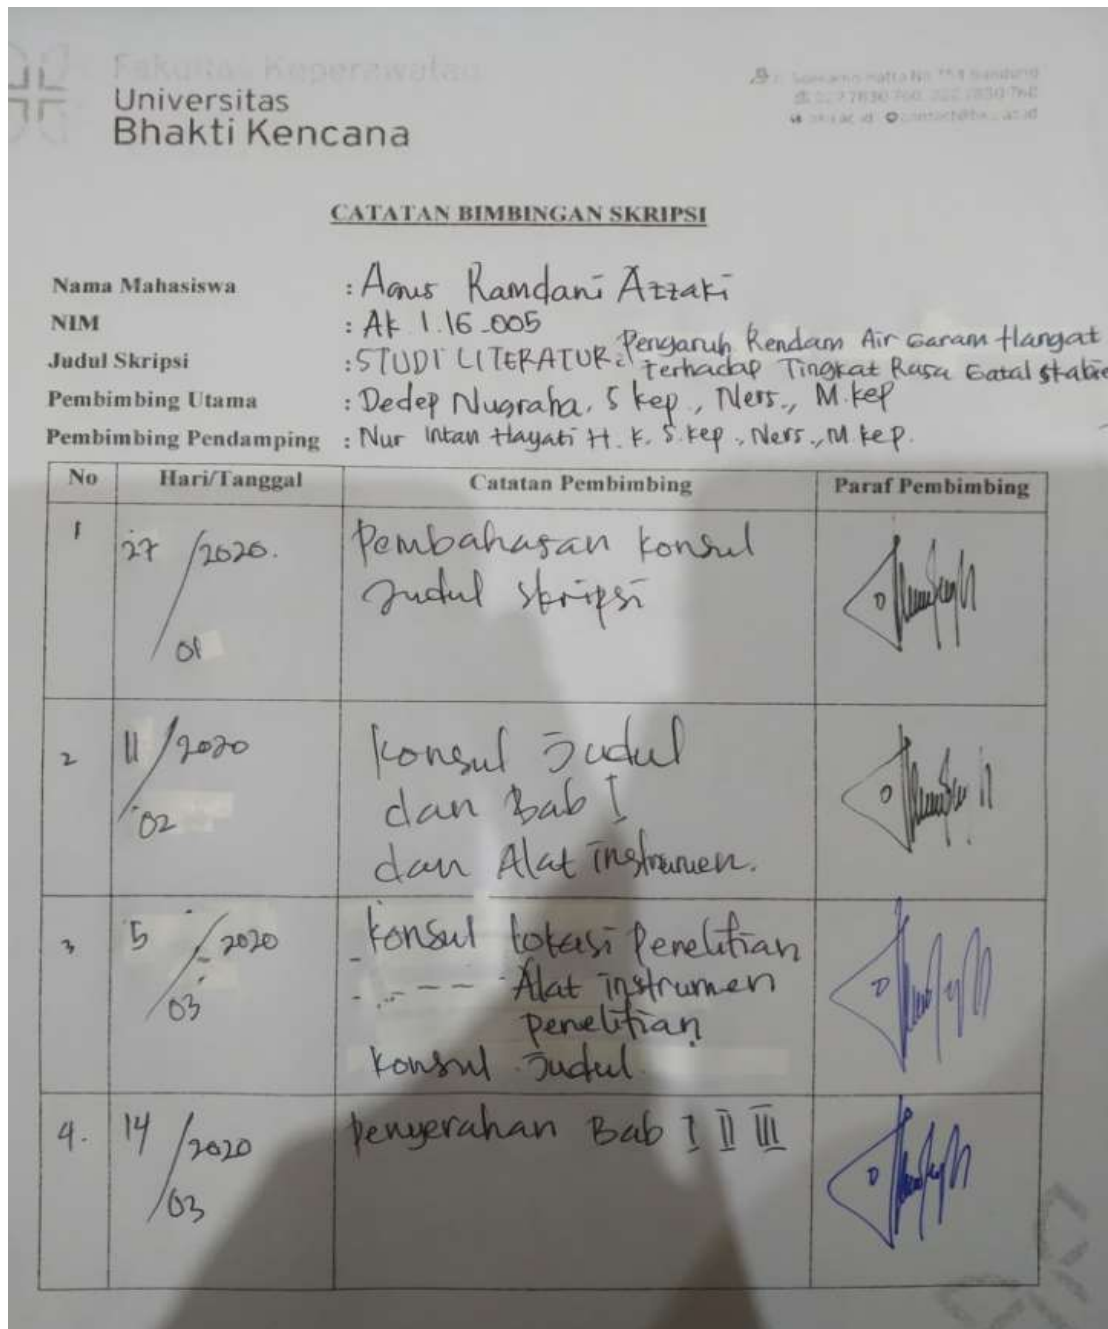 Fakultas Keperawatan
Universitas
Bhakti Kencana
CATATAN BIMBINGAN SKRIPSI
Nama Mahasiswa : Agus Ramdani Azzaki
NIM : Ak 1.16.005
Judul Skripsi : STUDI LITERATUR: Pengaruh Rendam Air Garam Hangat
Terhadap Tingkat Rasa Gatal Skabie
Pembimbing Utama : Dedep Nugraha, S kep., Ners., M.kep
Pembimbing Pendamping : Nur Intan Hayati H. K, S.kep., Ners., M.kep.
No Hari/Tanggal Catatan Pembimbing Paraf Pembimbing
1 27/01/2020. Pembahasan konsul
Judul skripsi
2 11/02/2020 Konsul Judul
dan Bab I
dan Alat instrumen.
3 5/03/2020 - Konsul lokasi Penelitian
- Alat instrumen
penelitian
Konsul Judul.
4. 14/03/2020 penyerahan Bab I II III